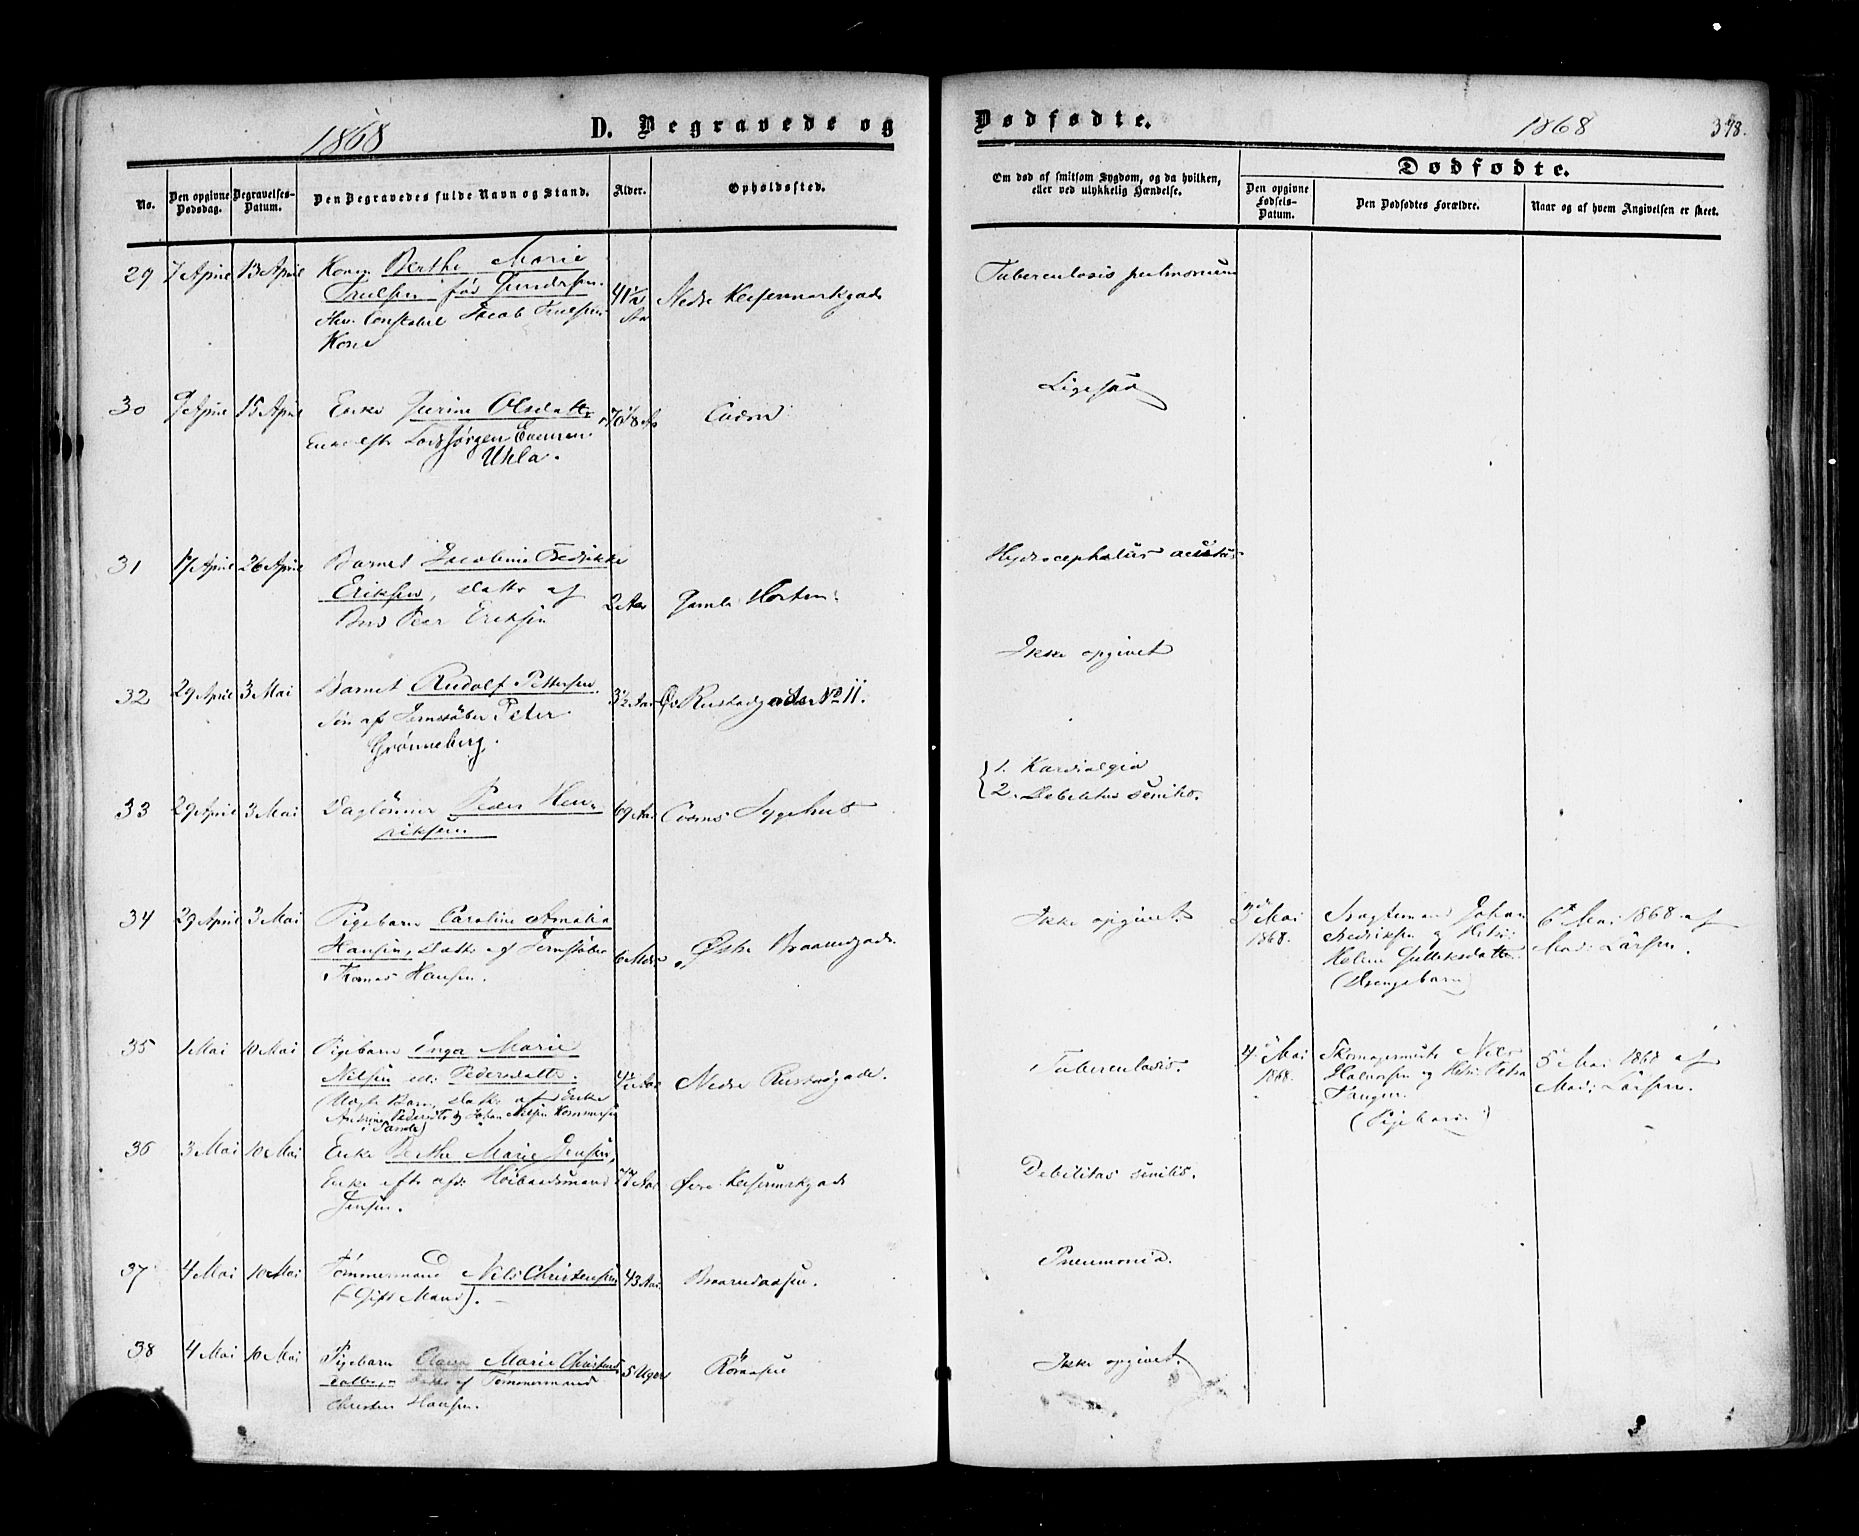 1868 D. Begravede og
No.
Den opgivne Dødsdag.
Begravelses-Datum.
Den Begravedes fulde Navn og Stand.
Alder.
Opholdssted.
29 7 April 13 April Konen Berthe Marie
Trulsen fød Gundersen.
Constabel Jacob Trulsens
Kone
41 1/2 Aar
Nedre Keisemarkgade
30 9 April 15 April Enke Jurine Olsdatter
Enke efter Lods Jørgen Evensen
Uhla.
70 1/8 Aar
31 17 April 26 April Barnet Jacobine Fredrikke
Eriksen, Datter af
Peer Eriksen
2 Aar Gamle Horten
32 29 April 3 Mai Barnet Rudolf Pettersen
Søn af Jernstøber Peter
Grønneberg.
3 1/2 Aar Øv. Rustadgaden No 11.
33 29 April 3 Mai Daglønner Peder Hen-
riksen
69 Aar Coms Sygehus
34 29 April 3 Mai Pigebarn Caroline Amalia
Hansen, Datter af Jernstøber
Tomas Hansen.
6 Mdr Østre Braarudgade.
35 1 Mai 10 Mai Pigebarn Inga Marie
Nilsen ell. Pedersdatter.
(Uægte Barn, Datter af Enke
Andrine Pedersdtr & Johan Nilsen Kommersøe
i Sande)
4 1/2 Aar Nedre Rustadgade.
36 3 Mai 10 Mai Enke Berthe Marie Jensen,
Enke efter afd. Høibaadsmand
Jensen.
77 Aar Øvre Keisemarkgade
37 4 Mai 10 Mai Tømmermand Nils Christensen
(Gift Mand).
43 Aar Braarudaasen.
38 4 Mai 10 Mai Pigebarn Olava Marie Christens-
datter, Datter af Tømmermand
Christen Hansen.
5 Uger
Dødfødte. 1868 378.
Om død af smitsom Sygdom, og da hvilken,
eller ved ulykkelig Hændelse.
Dødfødte.
Den opgivne Fødsels-Datum.
Den Dødfødtes Forældre.
Naar og af hvem Angivelsen er skeet.
Tuberculosis pulmonum
Ligesaa
Hydrocephalus acutus
Ikke opgivet
1. Kardialgia
2. Debilitas senilis.
Ikke opgivet.
3die Mai
1868.
Fragtemand Johan
Fredriksen og Hstr:
Helene Gulliksdatter
(Drengebarn)
6te Mai 1868 af
Mad: Larsen.
Tuberculosis.
4. Mai
1868.
Skomagermester Nils
Halvorsen og Hstr: Petra
Haugen.
(Pigebarn)
5 Mai 1868 af
Mad: Larsen.
Debilitas senilis.
Pneumonia.
Ikke opgivet.